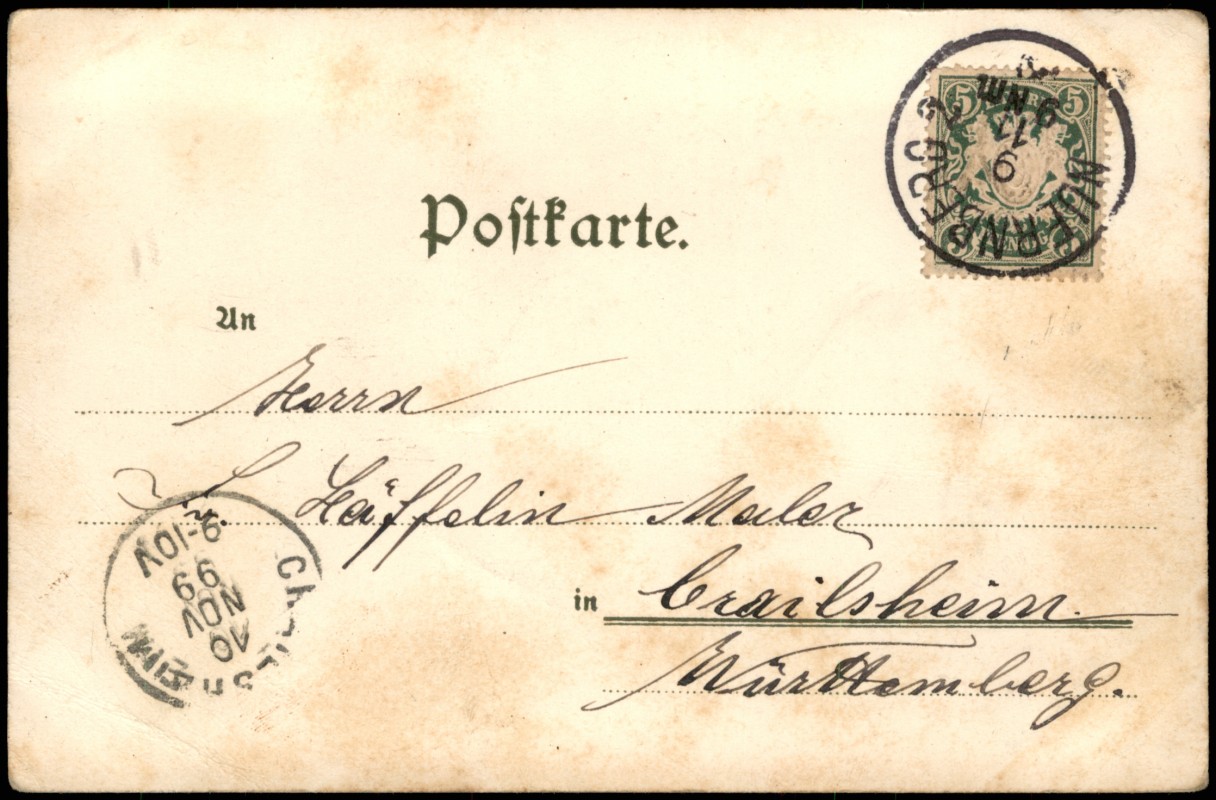 5 5
NUERNBERG 2
9
Postkarte.
An
Herrn
L. Häffelin Maler
in Crailsheim
Württemberg.
CRAILSHEIM
10
NOV
99
9-10V